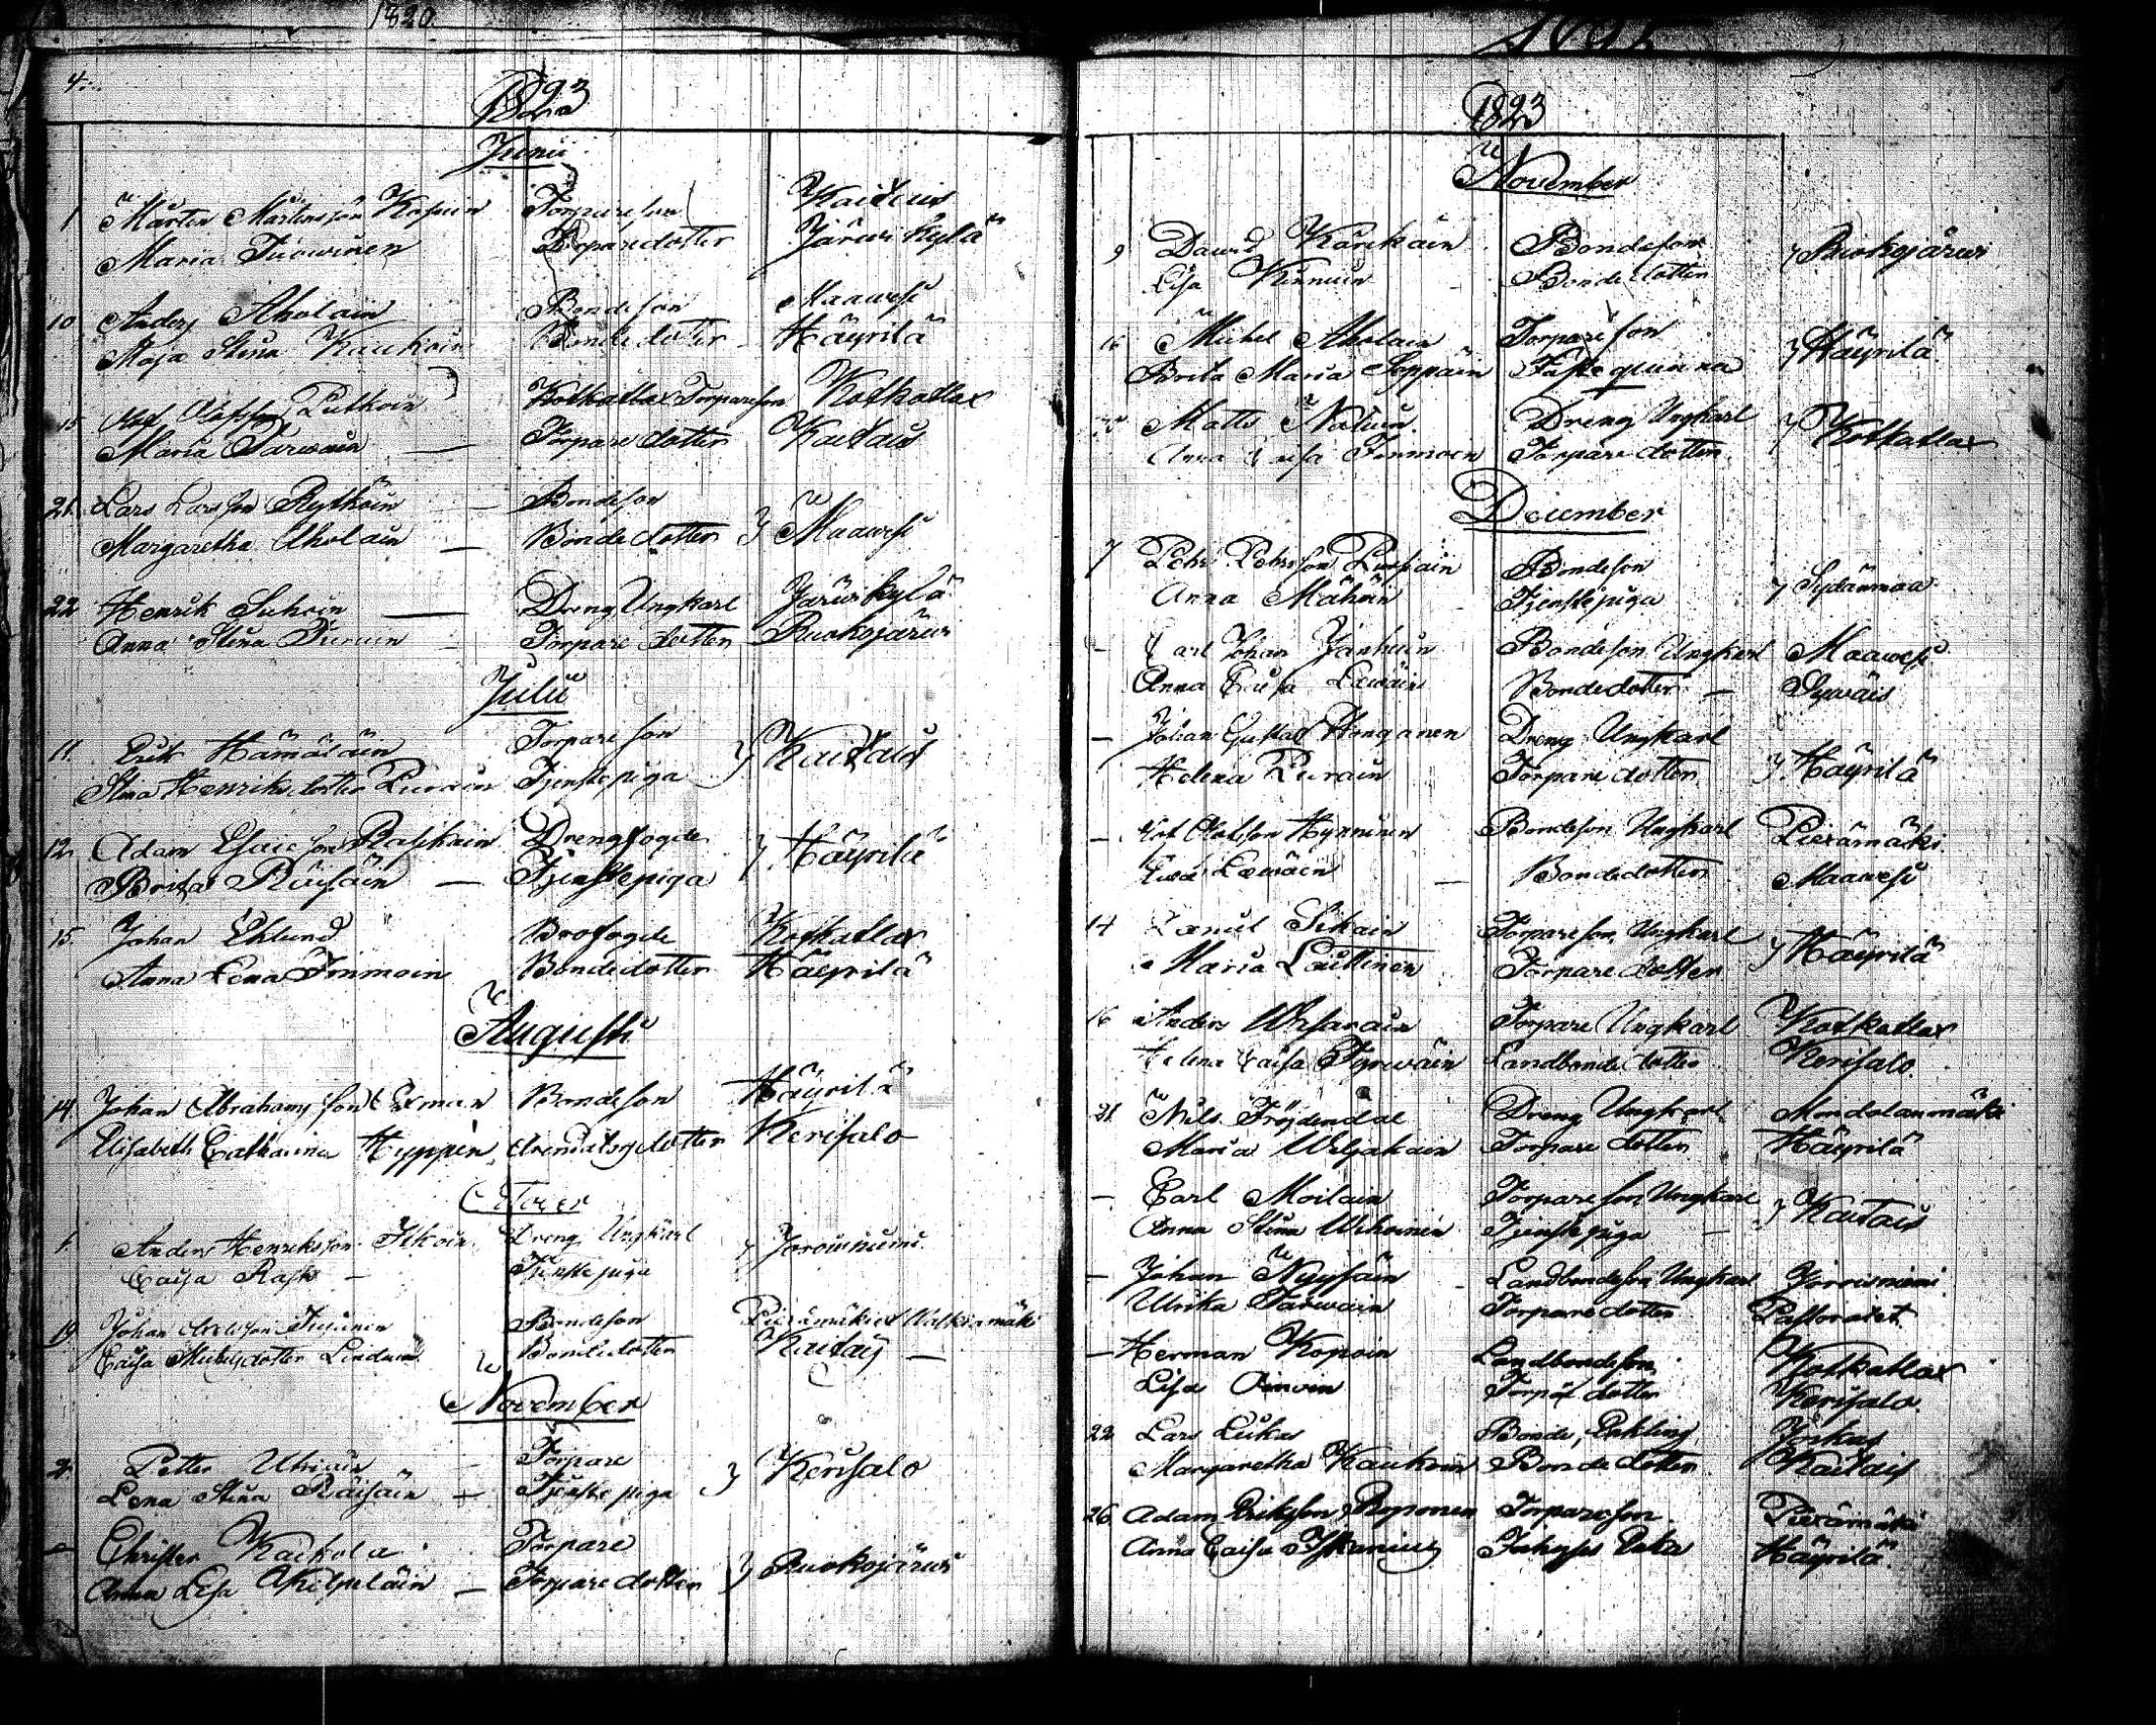 1820.
4.
1823
Junii
1 Mårten Mårtensson Kopuin Torpareson Kaitais
Maria Turwinen Torparedotter Järwikylä
10 Anders Aholain Bondeson Maawesi
Maja Stina Kaukoin Bondedotter Häyrilä
15 Olof Olofsson Putkoin Kotkatlax Torpareson Kotkatlax
Maria Tarwain — Torparedotter Kaitais
21. Lars Larsson Rytköin — Bondeson
Margaretha Aholain — Bondedotter } Maawesi
22 Henrik Suhoin — Dreng Ungkarl Järwikylä
Anna Stina Turuin Torparedotter Ruokojärwi
Julii
11. Erik Hämäläin Torpareson
Stina Henriksdotter Purain Tjenstepiga } Kaitais
12. Adam Esaiesson Raskain Drengfogde
Brita Räisäin — Tjenstepiga } Häyrilä
15. Johan Eklund Brofogde Kotkatlax
Anna Lena Immoin Bondedotter Häyrilä
Augusti
14. Johan Abrahamsson Exman Bondeson Häyrilä
Elisabeth Catharina Hyppin Arendatorsdotter Kerisalo
October
Anders Henriksson Ikoin Dreng Ungkarl } Joroisniemi
Caisa Rask — Tjenstepiga
19. Johan Axelsson Bondeson Piexämäki
Caisa Michelsdotter Bondedotter Kaitais —
November
2. Petter Utriain Torpare
Lena Stina Räisäin — Tjenstepiga } Kerisalo
— Christer Kaikola Torpare
Anna Lisa Torparedotter } Ruokojärwi
1823
November
9 Dawid Kärikäin Bondeson } Ruokojärwi
Lisa Kinnuin Bondedotter
16 Michel Aholain Torpareson } Häyrilä
Brita Maria Soppäin Fästeqwinna
Matts Natuin Dreng Ungkarl } Kotkatlax
Anna Caisa Immoin Torparedotter
December
7 Pehr Pehrsson Purhain Bondeson } Sydänmaa
Anna Mähöin Tjenstepiga
— Carl Johan Janhuin Bondeson Ungkarl Maawesi
Anna Caisa Lawäin Bondedotter — Sywäis
— Johan Gustaf Honganen Dreng Ungkarl
Helena Purain Torparedotter } Häyrilä
— Olof Olofsson Hynninen Bondeson Ungkarl Piexämäki
Lewäin — Bondedotter Maawesi
14 Sikain Torpareson Ungkarl } Häyrilä
Maria Laittinen Torparedotter
16 Anders Wesanain Torpare Ungkarl Kotkatlax
Helena Caisa Tyrwäin Landbondedotter Kerisalo
21. Nils Fröjdendal Dreng Ungkarl Mondolanmäki
Maria Wiljakain Torparedotter Häyrilä
— Carl Moilain Torpareson Ungkarl } Kaitais
Anna Stina Wihoinen Tjenstepiga —
— Johan Nyyssäin Landbondeson Ungkarl Joroisniemi
Ulrika Tarwain Torparedotter Pastoratet
— Herman Kopoin Landbondeson Kotkatlax
Lisa Torp. dotter Kerisalo
22 Lars Lukas Bonde, Enkling Jockas
Margaretha Kaukoin Bondedotter Kaitais
26 Adam Eriksson Roponen Torpareson Piexämäki
Anna Caisa Häyrilä